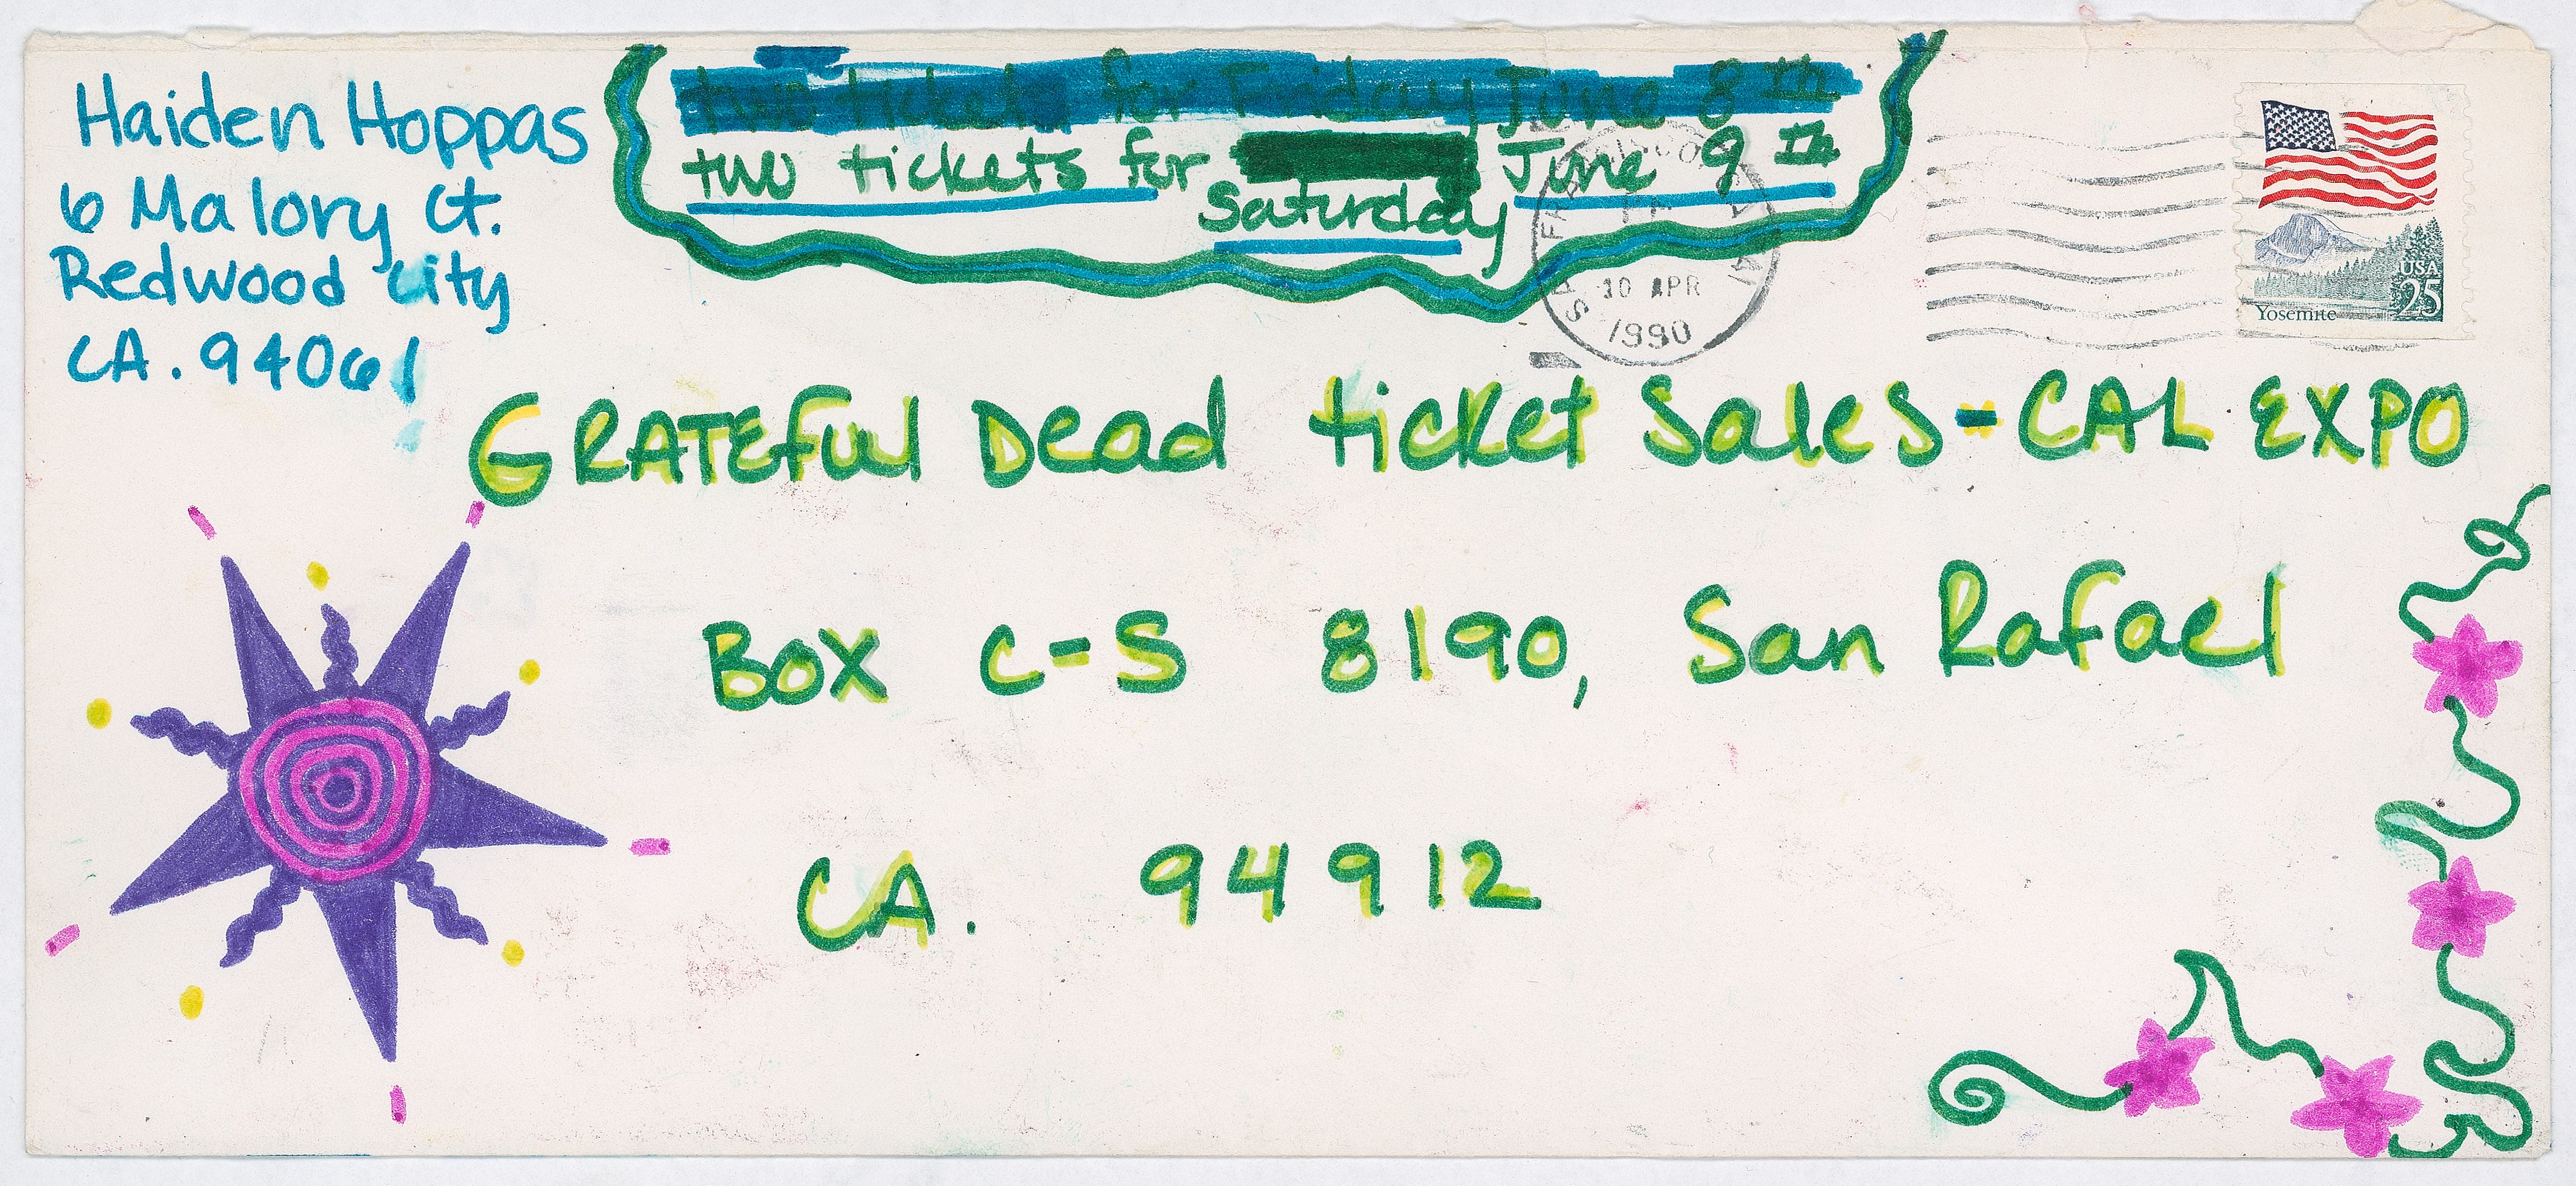 Haiden Hoppas
6 Malory Ct.
Redwood City
CA. 94061
two tickets for Friday June 8th
two tickets for June 9th
Saturday
SAN FRANCISCO
10 APR
1990
USA
25
Yosemite
GRATEFul Dead ticket Sales - CAL EXPO
BOX C-S 8190, San Rafael
CA. 94912